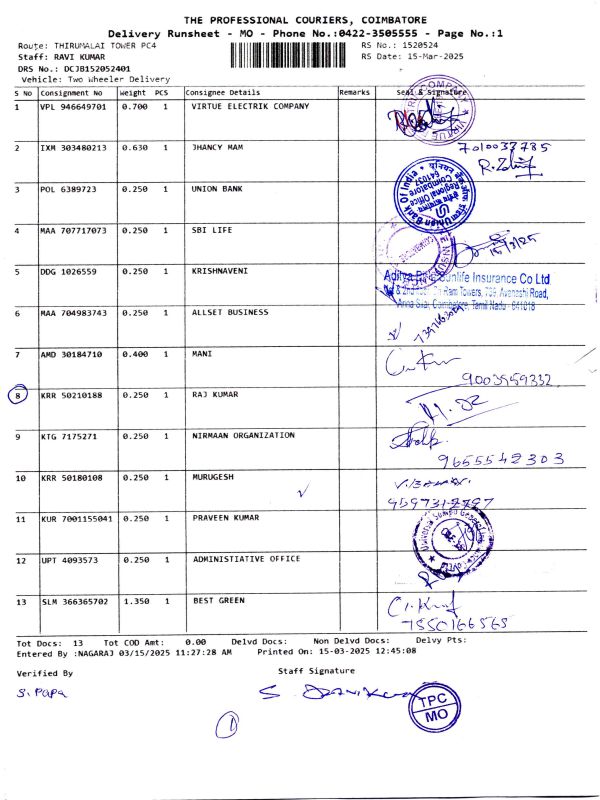 THE PROFESSIONAL COURIERS, COIMBATORE
Delivery Runsheet - MO - Phone No.:0422-3505555 - Page No.:1
Route: THIRUMALAI TOWER PC4 RS No.: 1520524
Staff: RAVI KUMAR RS Date: 15-Mar-2025
DRS No.: DCJB152052401
Vehicle: Two Wheeler Delivery
S No Consignment No Weight PCS Consignee Details Remarks Seal & Signature
1 VPL 946649701 0.700 1 VIRTUE ELECTRIK COMPANY
2 IXM 303480213 0.630 1 JHANCY MAM 7010037785
3 POL 6389723 0.250 1 UNION BANK
Union Bank Of India
Regional Office
Coimbatore
641037
4 MAA 707717073 0.250 1 SBI LIFE 15/3/25
5 DDG 1026559 0.250 1 KRISHNAVENI
Aditya Sunlife Insurance Co Ltd
Ram Towers, 759, Avanashi Road,
Anna Silai, Coimbatore, Tamil Nadu - 641018
6 MAA 704983743 0.250 1 ALLSET BUSINESS
7 AMD 30184710 0.400 1 MANI 9003959332
8 KRR 50210188 0.250 1 RAJ KUMAR
9 KTG 7175271 0.250 1 NIRMAAN ORGANIZATION 9655542303
10 KRR 50180108 0.250 1 MURUGESH
11 KUR 7001155041 0.250 1 PRAVEEN KUMAR
12 UPT 4093573 0.250 1 ADMINISTIATIVE OFFICE
13 SLM 366365702 1.350 1 BEST GREEN 7550166563
Tot Docs: 13 Tot COD Amt: 0.00 Delvd Docs: Non Delvd Docs: Delvy Pts:
Entered By :NAGARAJ 03/15/2025 11:27:28 AM Printed On: 15-03-2025 12:45:08
Verified By Staff Signature
S. PAPA
TPC
MO
1